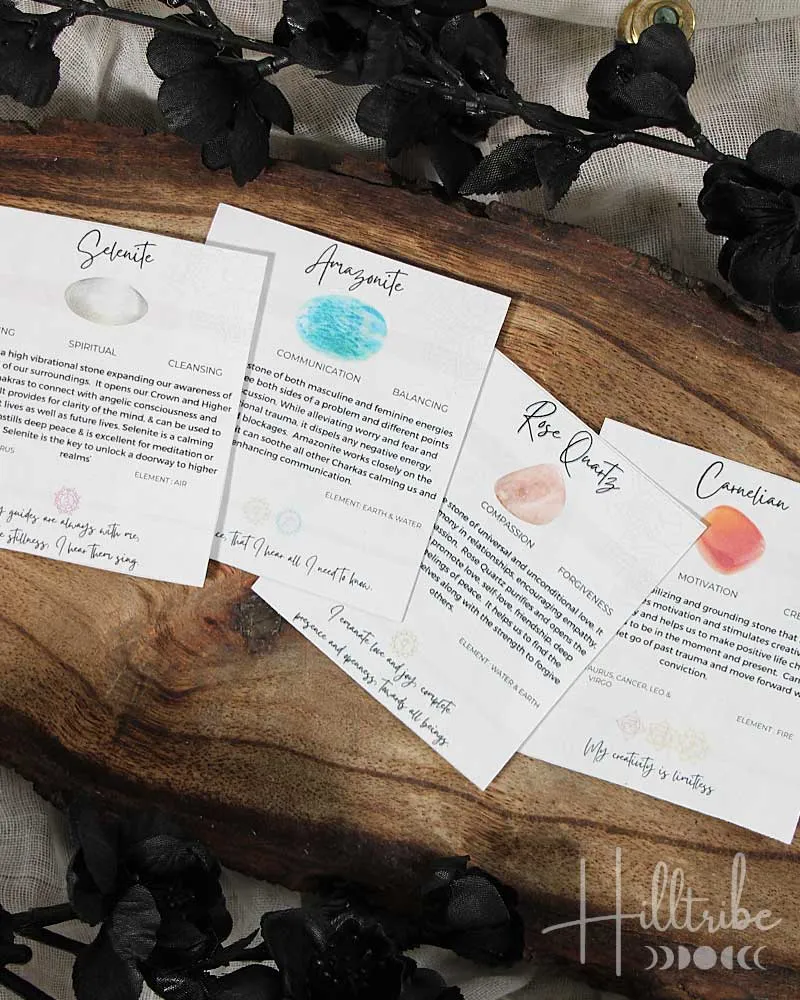 Selenite
SPIRITUAL
CLEANSING
a high vibrational stone expanding our awareness of
of our surroundings. It opens our Crown and Higher
to connect with angelic consciousness and
It provides for clarity of the mind, & can be used to
lives as well as future lives. Selenite is a calming
instills deep peace & is excellent for meditation or
Selenite is the key to unlock a doorway to higher
realms'
ELEMENT: AIR
y guides are always with me,
e stillness, I hear them sing.
Amazonite
COMMUNICATION
BALANCING
stone of both masculine and feminine energies
both sides of a problem and different points
While alleviating worry and fear and
trauma, it dispels any negative energy.
blockages. Amazonite works closely on the
it can soothe all other Charkas calming us and
enhancing communication.
ELEMENT: EARTH & WATER
that I hear all I need to know.
Rose Quartz
COMPASSION
FORGIVENESS
stone of universal and unconditional love. It
in relationships, encouraging empathy,
Rose Quartz purifies and opens the
promote love, self-love, friendship, deep
feelings of peace. It helps us to find the
along with the strength to forgive
others.
ELEMENT: WATER & EARTH
I emanate love and joy, complete
presence and openness, towards all beings.
Carnelian
MOTIVATION
CRE
bilizing and grounding stone that
motivation and stimulates creativ
and helps us to make positive life ch
to be in the moment and present. Carn
let go of past trauma and move forward w
conviction.
AURUS, CANCER, LEO &
VIRGO
ELEMENT: FIRE
My creativity is limitless
Hilltribe